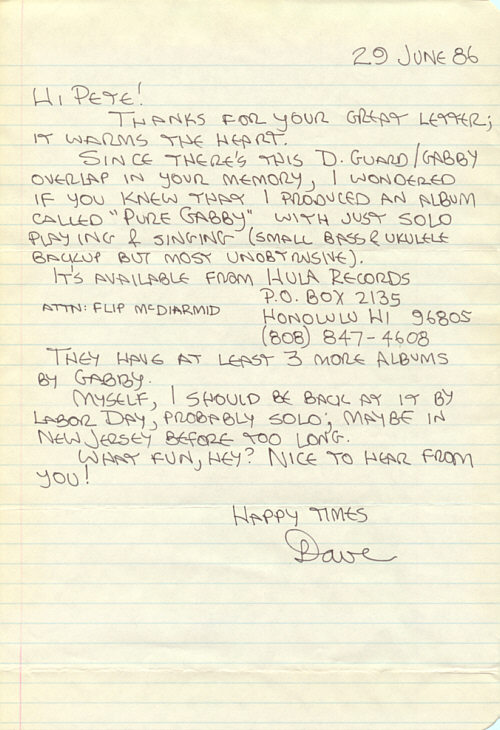 29 JUNE 86
HI PETE!
THANKS FOR YOUR GREAT LETTER;
IT WARMS THE HEART.
SINCE THERE'S THIS D. GUARD/GABBY
OVERLAP IN YOUR MEMORY, I WONDERED
IF YOU KNEW THAT I PRODUCED AN ALBUM
CALLED "PURE GABBY" WITH JUST SOLO
PLAYING & SINGING (SMALL BASS & UKULELE
BACKUP BUT MOST UNOBTRUSIVE).
IT'S AVAILABLE FROM HULA RECORDS
P.O. BOX 2135
ATTN: FLIP MCDIARMID
HONOLULU HI 96805
(808) 847-4608
THEY HAVE AT LEAST 3 MORE ALBUMS
BY GABBY.
MYSELF, I SHOULD BE BACK AT IT BY
LABOR DAY, PROBABLY SOLO; MAYBE IN
NEW JERSEY BEFORE TOO LONG.
WHAT FUN, HEY? NICE TO HEAR FROM
YOU!
HAPPY TIMES
Dave